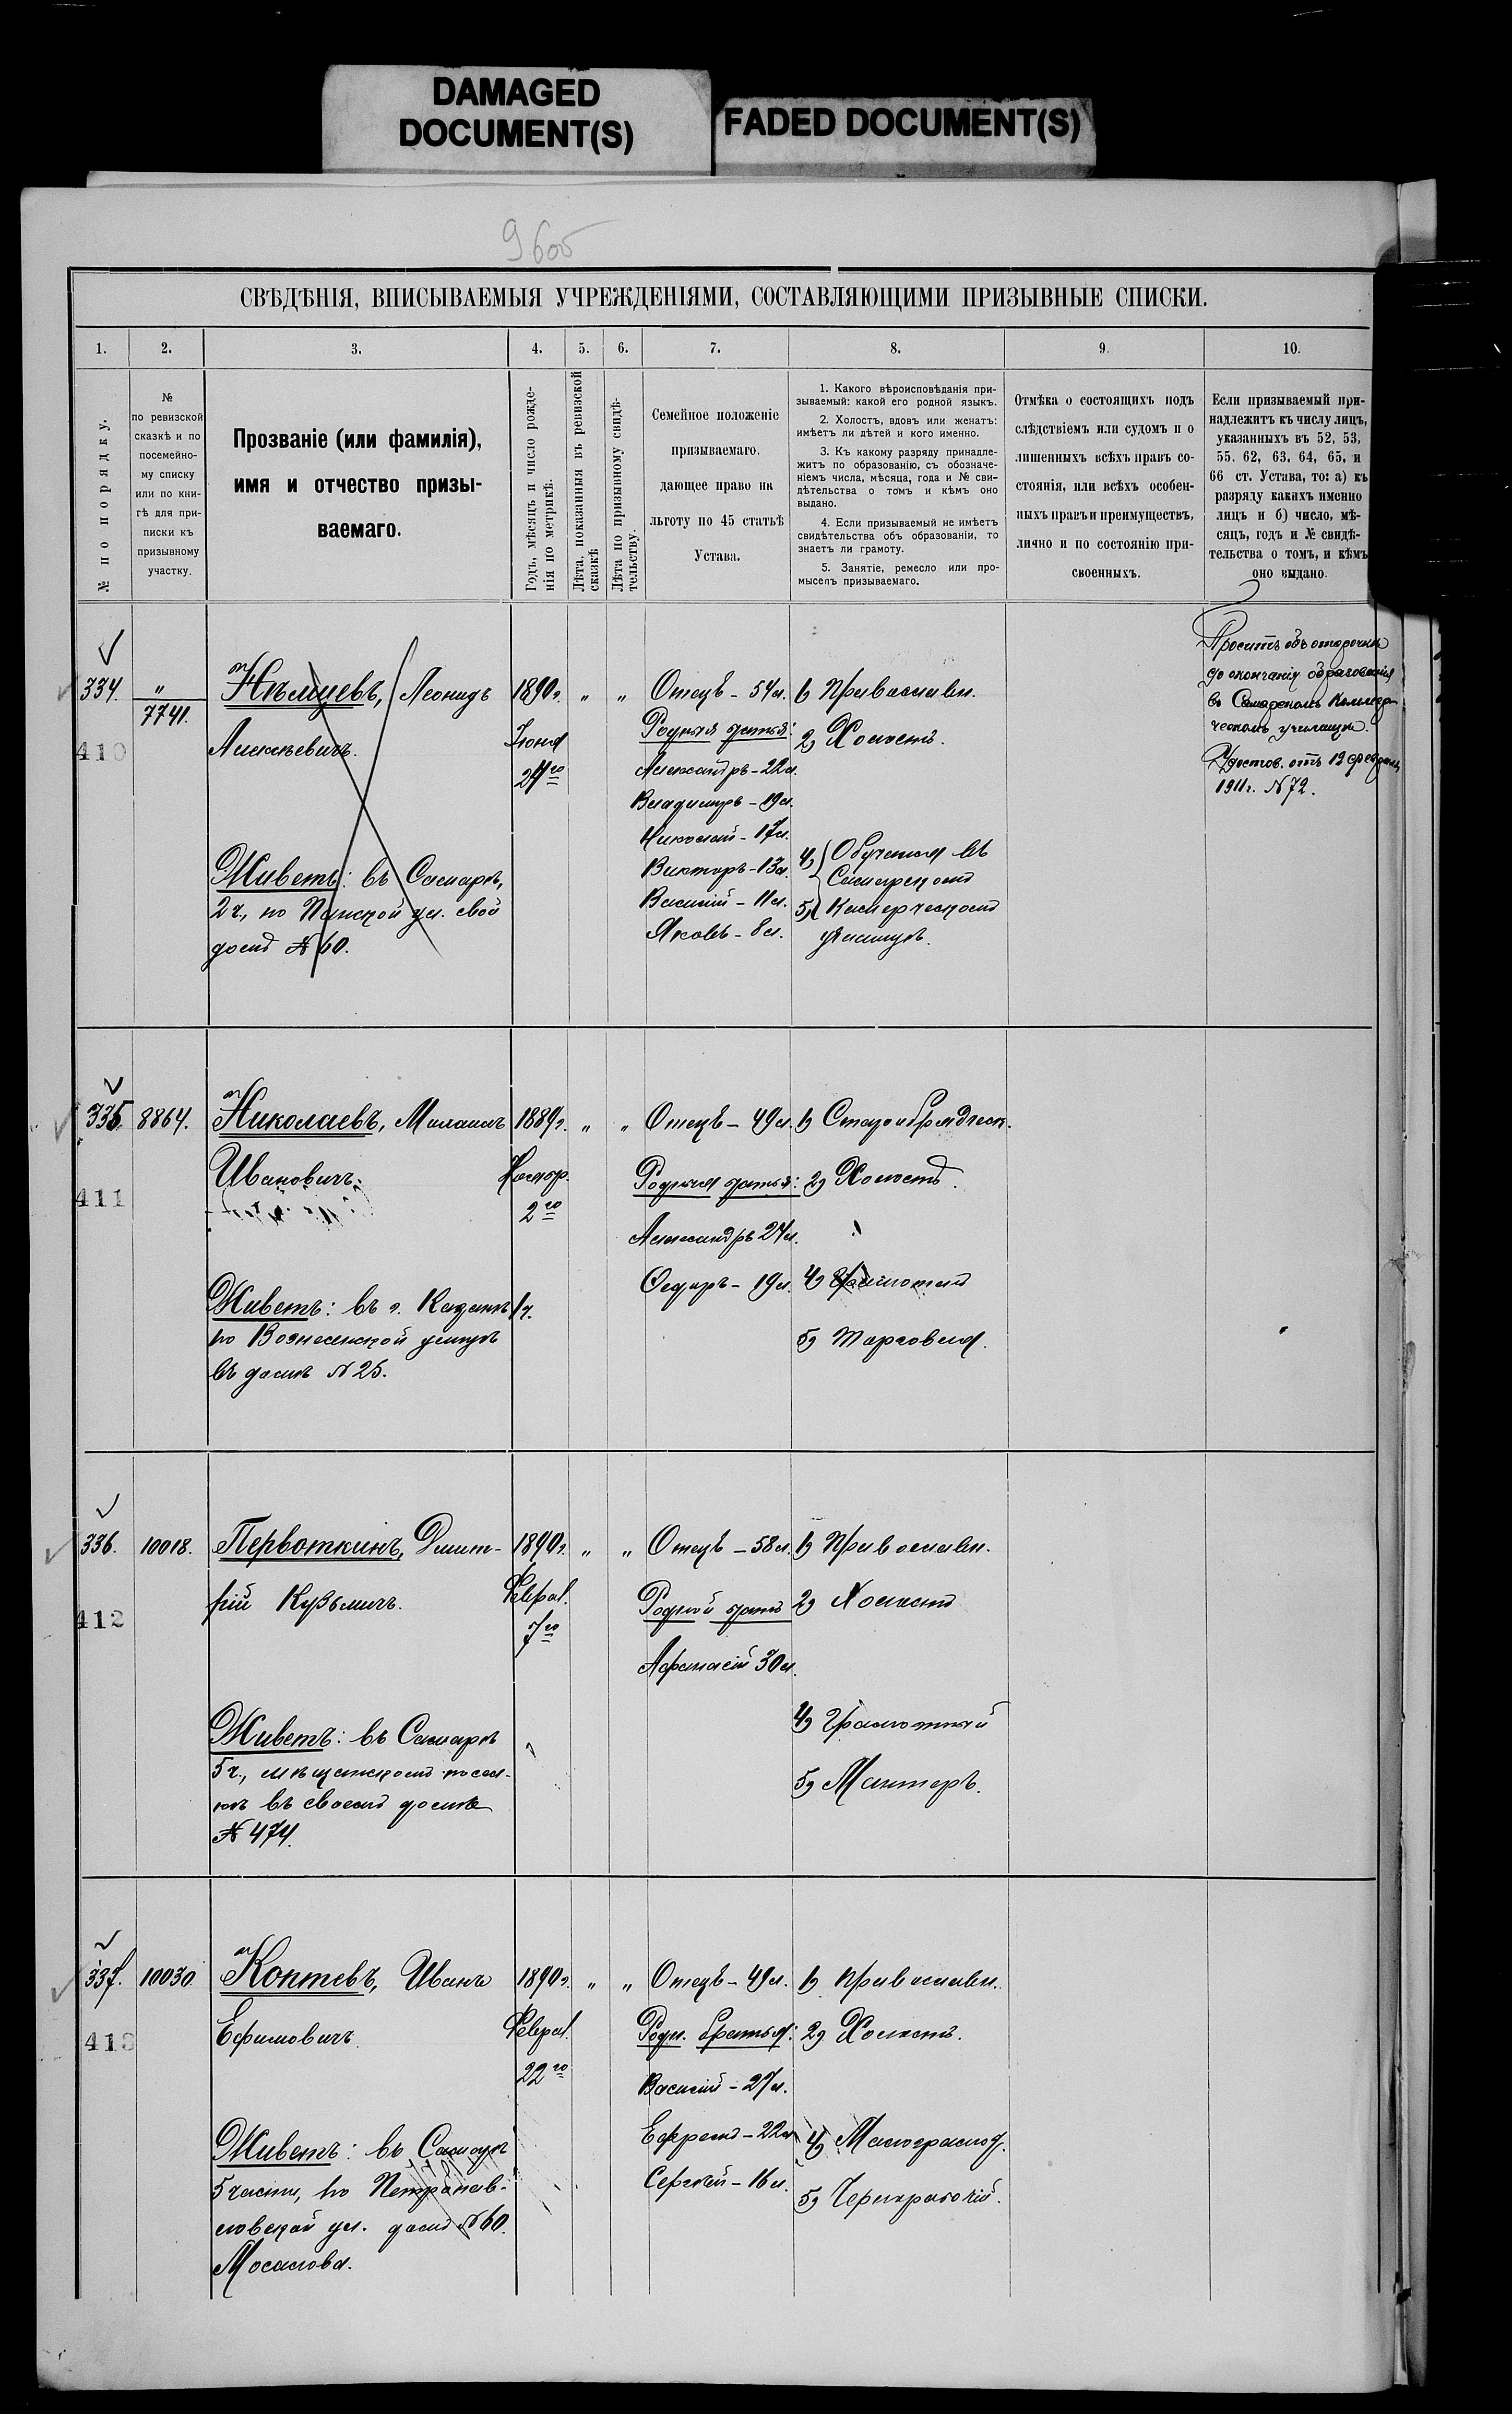 DAMAGED
DOCUMENT(S)
FADED DOCUMENT(S)
СВѢДѢНІЯ, ВПИСЫВАЕМЫЯ УЧРЕЖДЕНІЯМИ, СОСТАВЛЯЮЩИМИ ПРИЗЫВНЫЕ СПИСКИ.
1. 2. 3. 4. 5. 6. 7. 8. 9. 10.
№ по порядку.
№
по ревизской
сказкѣ и по
посемейно-
му списку
или по кни-
гѣ для при-
писки къ
призывному
участку.
Прозваніе (или фамилія),
имя и отчество призы-
ваемаго.
Годъ, мѣсяцъ и число рожде-
нія по метрикѣ.
Лѣта, показанныя въ ревизской
сказкѣ
Лѣта по призывному свидѣ-
тельству.
Семейное положеніе
призываемаго,
дающее право на
льготу по 45 статьѣ
Устава.
1. Какого вѣроисповѣданія при-
зываемый: какой его родной языкъ.
2. Холостъ, вдовъ или женатъ:
имѣетъ ли дѣтей и кого именно.
3. Къ какому разряду принадле-
житъ по образованію, съ обозначе-
ніемъ числа, мѣсяца, года и № сви-
дѣтельства о томъ и кѣмъ оно
выдано.
4. Если призываемый не имѣетъ
свидѣтельства объ образованіи, то
знаетъ ли грамоту.
5. Занятіе, ремесло или про-
мыселъ призываемаго.
Отмѣка о состоящихъ подъ
слѣдствіемъ или судомъ и о
лишенныхъ всѣхъ правъ со-
стоянія, или всѣхъ особен-
ныхъ правъ и преимуществъ,
лично и по состоянію при-
своенныхъ.
Если призываемый при-
надлежитъ къ числу лицъ,
указанныхъ въ 52, 53,
55, 62, 63, 64, 65, и
66 ст. Устава, то: а) къ
разряду какихъ именно
лицъ и б) число, мѣ-
сяцъ, годъ и № свидѣ-
тельства о томъ, и кѣмъ
оно выдано.
334.
410
"
7741.
Нѣмцевъ, Леонидъ
Алексѣевичъ.
Живетъ: въ Самарѣ,
2 ч., по Панской ул. свой
домъ № 60.
1890 г.
Іюня
24го
" "
Отецъ - 54 л.
Родныя братья:
Александръ - 22 л.
Владимiръ - 19 л.
Николай - 17 л.
Викторъ - 13 л.
Василій - 11 л.
Яковъ - 8 л.
1) Православн.
2) Холостъ.
4) Обучается въ
Самарскомъ
5) Комерческомъ
училищѣ.
Проситъ объ отсрочкѣ
до окончанія образованія
въ Самарскомъ Коммер-
ческомъ училищѣ.
Удостов. отъ 12
1911 г. № 72.
335.
411
8864.
Николаевъ,
Ивановичъ.
Живетъ: въ г. Казани 1 ч.
по Вознесенской улицѣ
въ домѣ № 25.
1889 г.
Ноябр.
2го
" "
Отецъ - 49 л.
Родныя братья:
Александръ 24 л.
Федоръ - 19 л.
1) Старообрядческ.
2) Холостъ.
4) Грамотный
5) Торговля.
336.
412
10018.
Первоткинъ, Дмит-
рій Кузьмичъ.
Живетъ: въ Самарѣ
5 ч., мѣщанскомъ посел-
кѣ въ своемъ домѣ
№ 474.
1890 г.
Феврал.
7го
" "
Отецъ - 58 л.
Родной братъ
Афанасій 30 л.
1) Православн.
2) Холостъ
4) Грамотный
5) Мантеръ.
337.
413
10030.
Коптевъ, Иванъ
Ефимовичъ.
Живетъ: въ Самарѣ
5 части, по Петропав-
ловской ул. домъ № 60.
Мосалова.
1890 г.
Феврал.
22го
" "
Отецъ - 49 л.
Родн. братья:
Василій - 27 л.
Ефремъ - 22 л.
Сергѣй - 16 л.
1) Православн.
2) Холостъ.
4) Малограмот.
5) Чернорабочій.